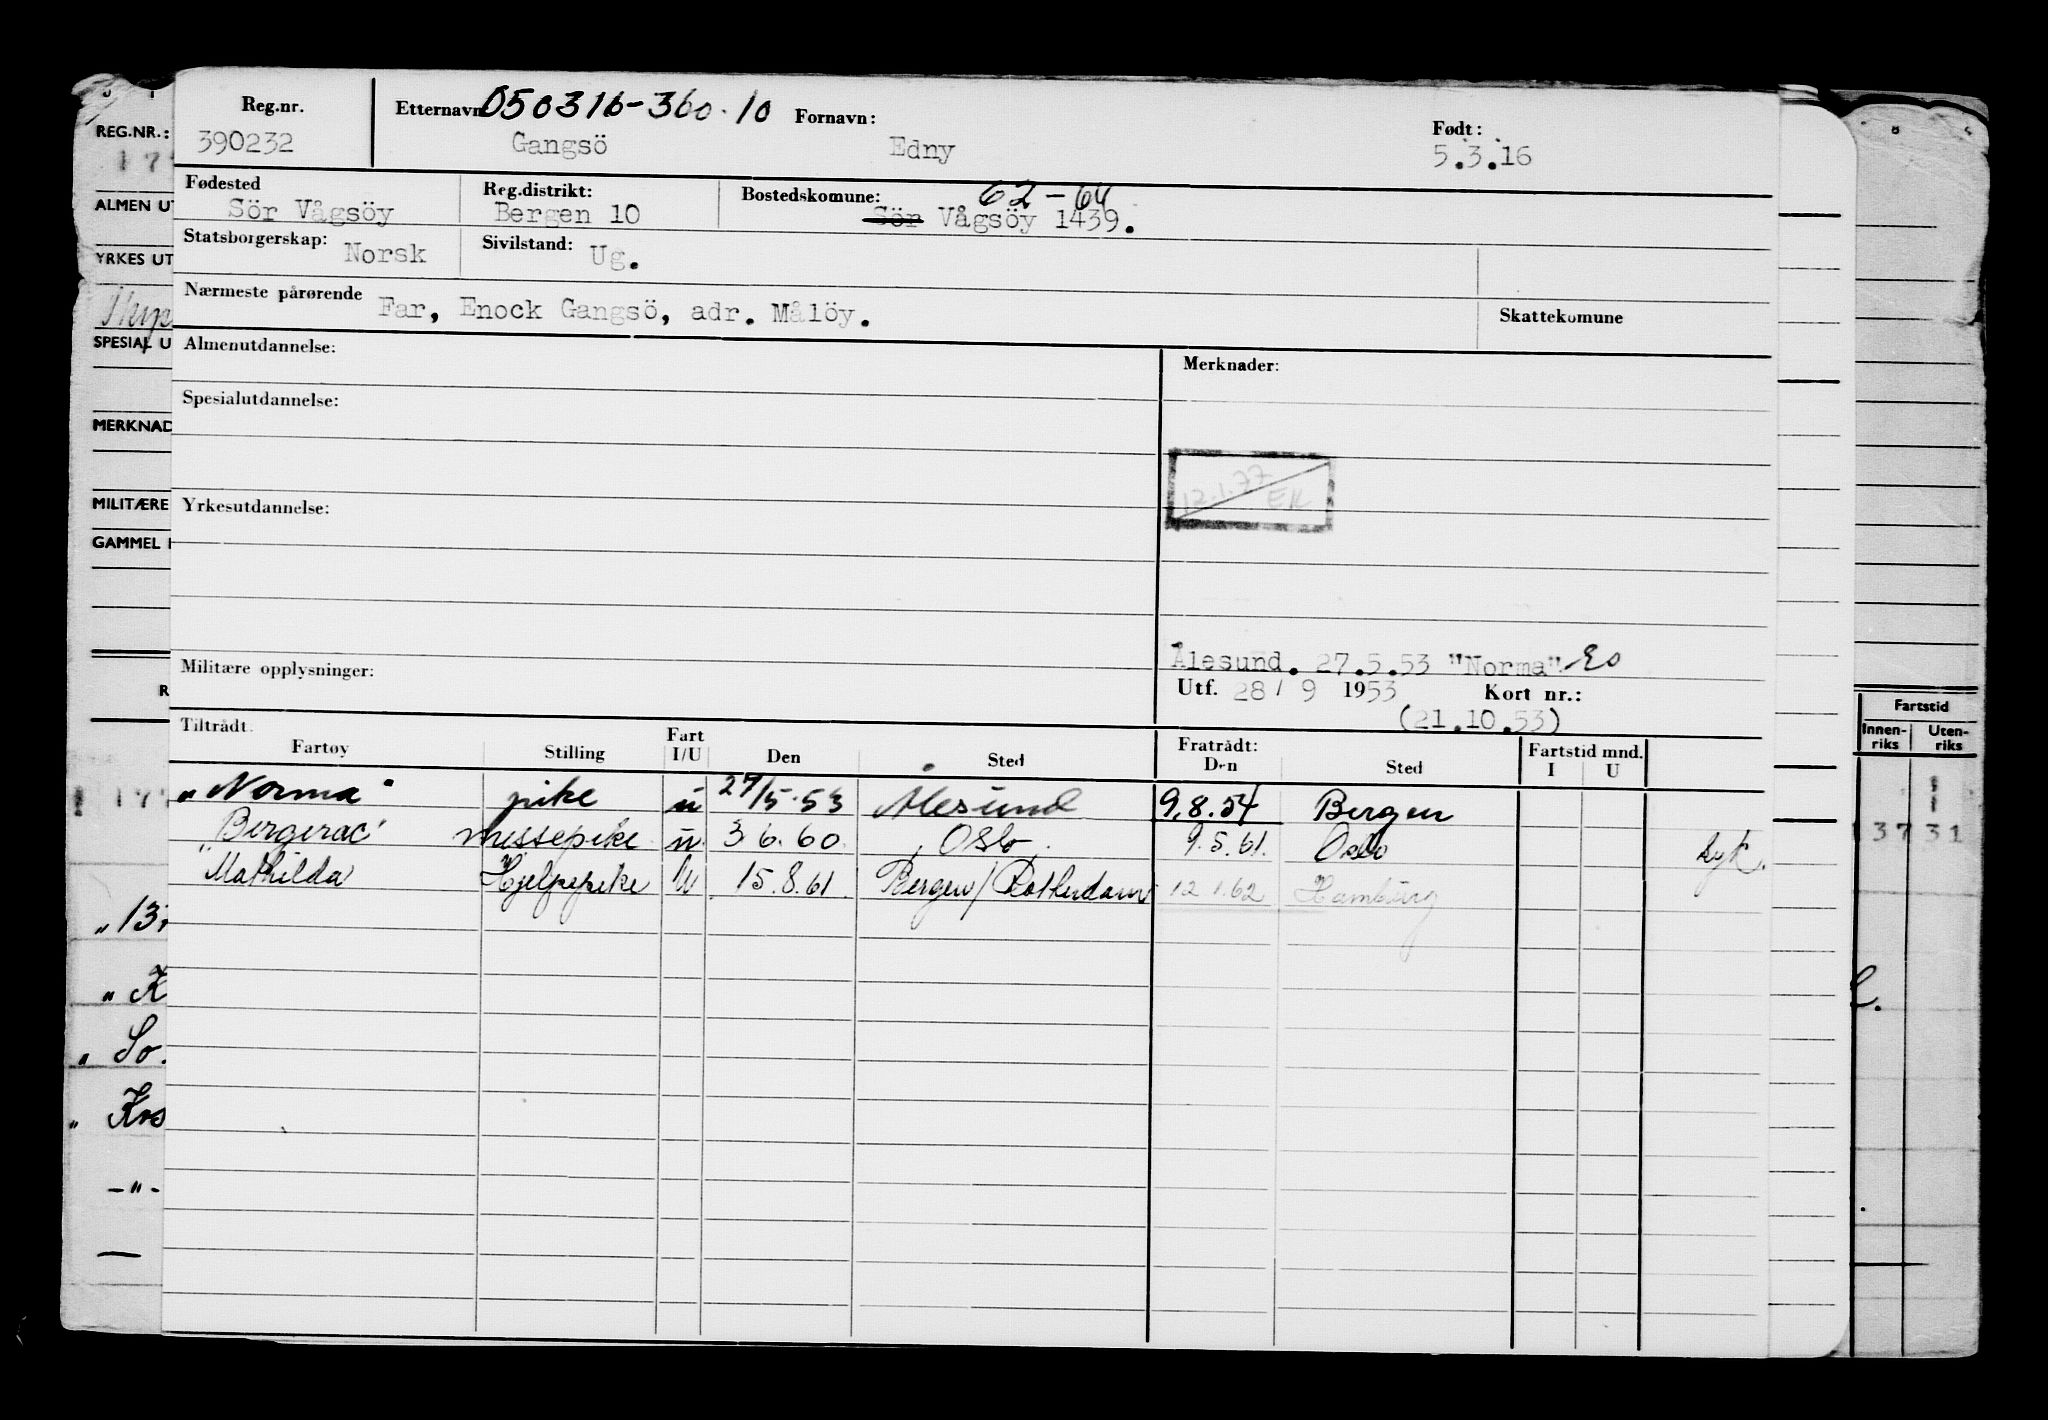 Reg.nr. Etternavn 050316-360.10 Fornavn: Født:
390232 Gangsö Edny 5.3.16
Fødested Reg.distrikt: Bostedskomune: 62-64
Sör Vågsöy Bergen 10 Sör Vågsöy 1439.
Statsborgerskap: Norsk Sivilstand: Ug.
Nærmeste pårørende Far, Enock Gangsö, adr. Målöy. Skattekomune
Almenutdannelse: Merknader:
Spesialutdannelse:
12.1.77 EK
Yrkesutdannelse:
Militære opplysninger:
Ålesund. 27.5.53 "Norma"
Utf. 28/9 1953 Kort nr.:
(21.10.53)
Tiltrådt. Fratrådt: Fartstid mnd.
Fartøy Stilling Fart I/U Den Sted Den Sted I U
"Norma" pike u 27/5-53 Ålesund 9.8.54 Bergen
"Bergerac" messepike u 3.6.60 Oslo 9.5.61. Oslo
Mathilda Hjelpepike U 15.8.61 Bergen/Rotterdam 12.1.62 Hamburg
REG.NR.:
ALMEN UT
YRKES UT
SPESIAL U
MERKNAD
MILITÆRE
GAMMEL
R
Fartstid
Innen-riks Uten-riks
37 31